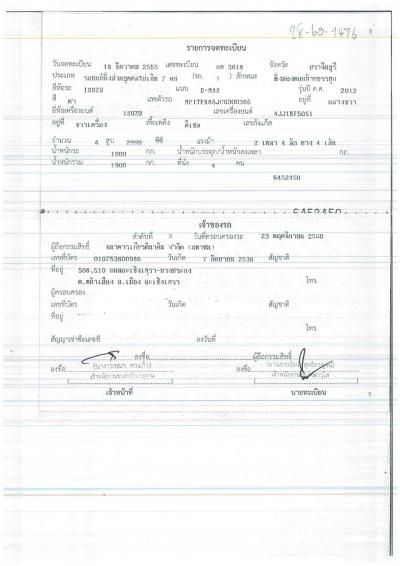 28-60-1476
8
รายการจดทะเบียน
วันจดทะเบียน 18 ธันวาคม 2555 เลขทะเบียน 3618 จังหวัด ปราจีนบุรี
ประเภท รถยนต์นั่งส่วนบุคคลไม่เกิน 7 คน (รย. 1) ลักษณะ นั่งสองตอนท้ายบรรทุก
ยี่ห้อรถ ISUZU แบบ D-MAX รุ่นปี ค.ศ. 2012
สี ดำ เลขตัวรถ อยู่ที่ กลางขวา
ยี่ห้อเครื่องยนต์ ISUZU เลขเครื่องยนต์
อยู่ที่ ขวาเครื่อง เชื้อเพลิง ดีเซล เลขถังแก๊ส
จำนวน 4 สูบ 2999 ซีซี แรงม้า 2 เพลา 4 ล้อ ยาง 4 เส้น
น้ำหนักรถ 1900 กก. น้ำหนักบรรทุก/น้ำหนักลงเพลา กก.
น้ำหนักรวม 1900 กก. ที่นั่ง 4 คน
6452450
6452450
เจ้าของรถ
ลำดับที่ 3 วันที่ครอบครองรถ 23 พฤศจิกายน 2560
ผู้ถือกรรมสิทธิ์ ธนาคารเกียรตินาคิน จำกัด (มหาชน)
เลขที่บัตร วันเกิด 7 กันยายน 2536 สัญชาติ
ที่อยู่ 508,510
อ.เมือง ฉะเชิงเทรา โทร.
ผู้ครอบครอง
เลขที่บัตร วันเกิด สัญชาติ
ที่อยู่
โทร.
สัญญาเช่าซื้อเลขที่ ลงวันที่
ลงชื่อ ผู้ถือกรรมสิทธิ์
ลงชื่อ ลงชื่อ
เจ้าหน้าที่ นายทะเบียน
9